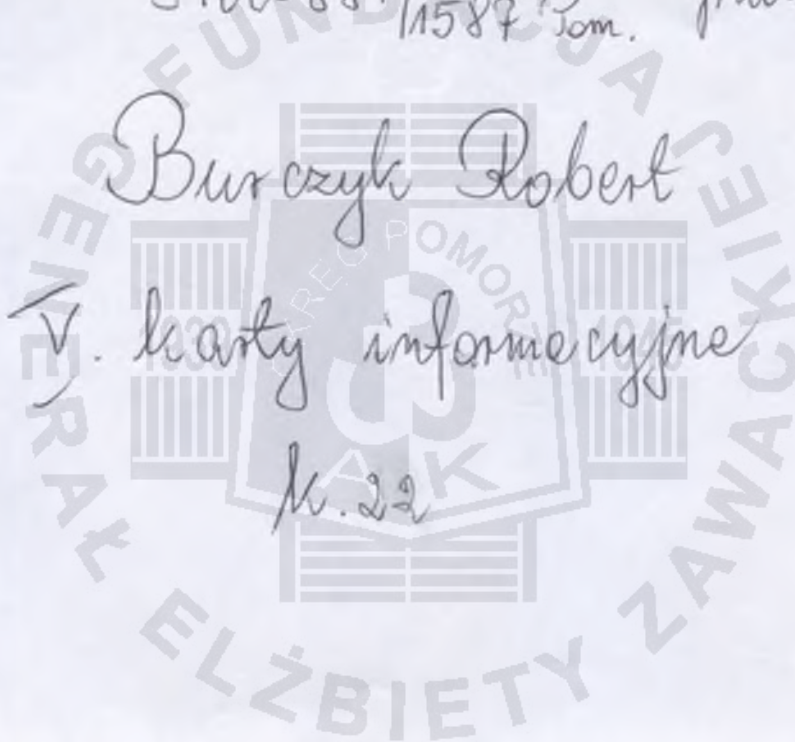 /1587 Pom.
Burczyk Robert
V. karty informacyjne
k. 22
FUNDACJA GENERAŁ ELŻBIETY ZAWACKIEJ
OKRĘG POMORZE
1939 1945
AK